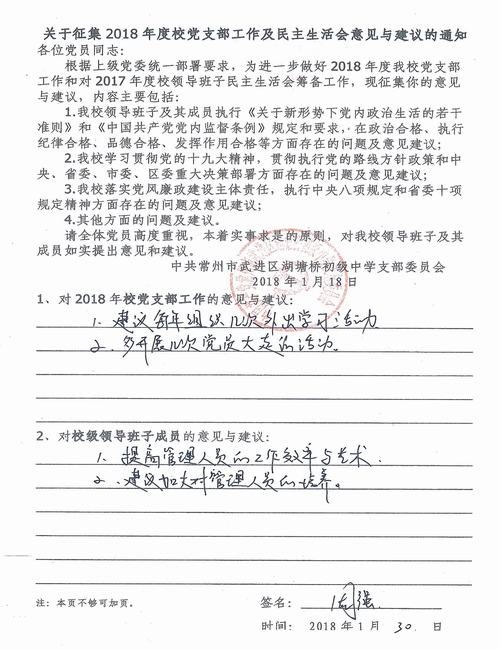 关于征集 2018 年度校党支部工作及民主生活会意见与建议的通知
各位党员同志：
根据上级党委统一部署要求，为进一步做好 2018 年度我校党支部
工作和对 2017 年度校领导班子民主生活会筹备工作，现征集你的意见
与建议，内容主要包括：
1.我校领导班子及其成员执行《关于新形势下党内政治生活的若干
准则》和《中国共产党党内监督条例》规定和要求，在政治合格、执行
纪律合格、品德合格、发挥作用合格等方面存在的问题及意见建议；
2.我校学习贯彻党的十九大精神，贯彻执行党的路线方针政策和中
央、省委、市委、区委重大决策部署方面存在的问题及意见建议；
3.我校落实党风廉政建设主体责任，执行中央八项规定和省委十项
规定精神方面存在的问题及意见建议；
4.其他方面的问题及建议。
请全体党员高度重视，本着实事求是的原则，对我校领导班子及其
成员如实提出意见和建议。
中共常州市武进区湖塘桥初级中学支部委员会
2018 年 1 月 18 日
1、对 2018 年校党支部工作的意见与建议：
1、建议每年组织几次外出学习活动
2、多开展几次党员大走访活动。
2、对校级领导班子成员的意见与建议：
1、提高管理人员的工作效率与艺术.
2、建议加大对管理人员的培养。
注：本页不够可加页。
签名：周强
时间： 2018 年 1 月 30 日